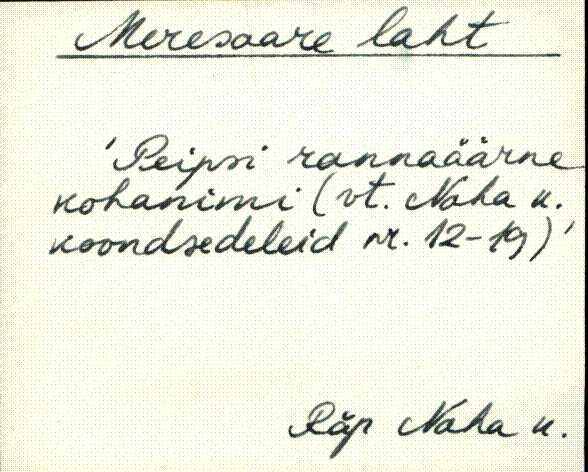 Meresaare laht
'Peipsi rannaäärne
kohanimi (vt. Naha k.
koondsedeleid nr. 12-19)'
Räp Naha k.